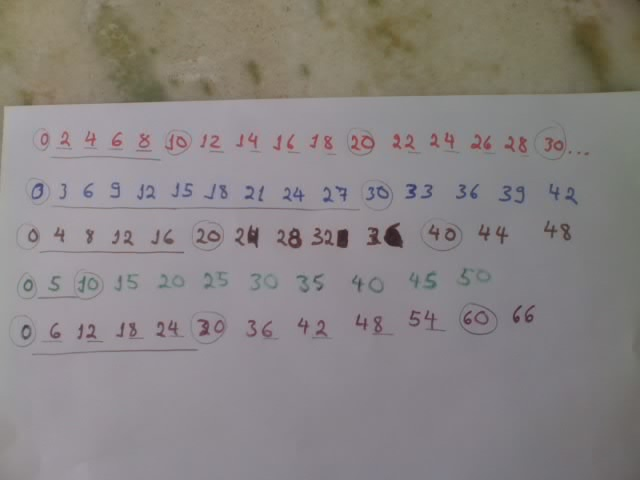 0 2 4 6 8 10 12 14 16 18 20 22 24 26 28 30...
0 3 6 9 12 15 18 21 24 27 30 33 36 39 42
0 4 8 12 16 20 24 28 32 36 40 44 48
0 5 10 15 20 25 30 35 40 45 50
0 6 12 18 24 30 36 42 48 54 60 66